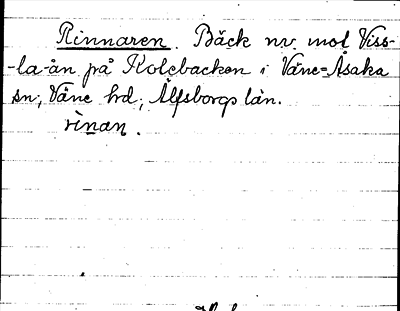 Rinnaren. Bäck nv mot Viss-
-la-ån på Kolebacken i Väne-Åsaka
sn, Väne hd, Älfsborgs län.
rìnan.